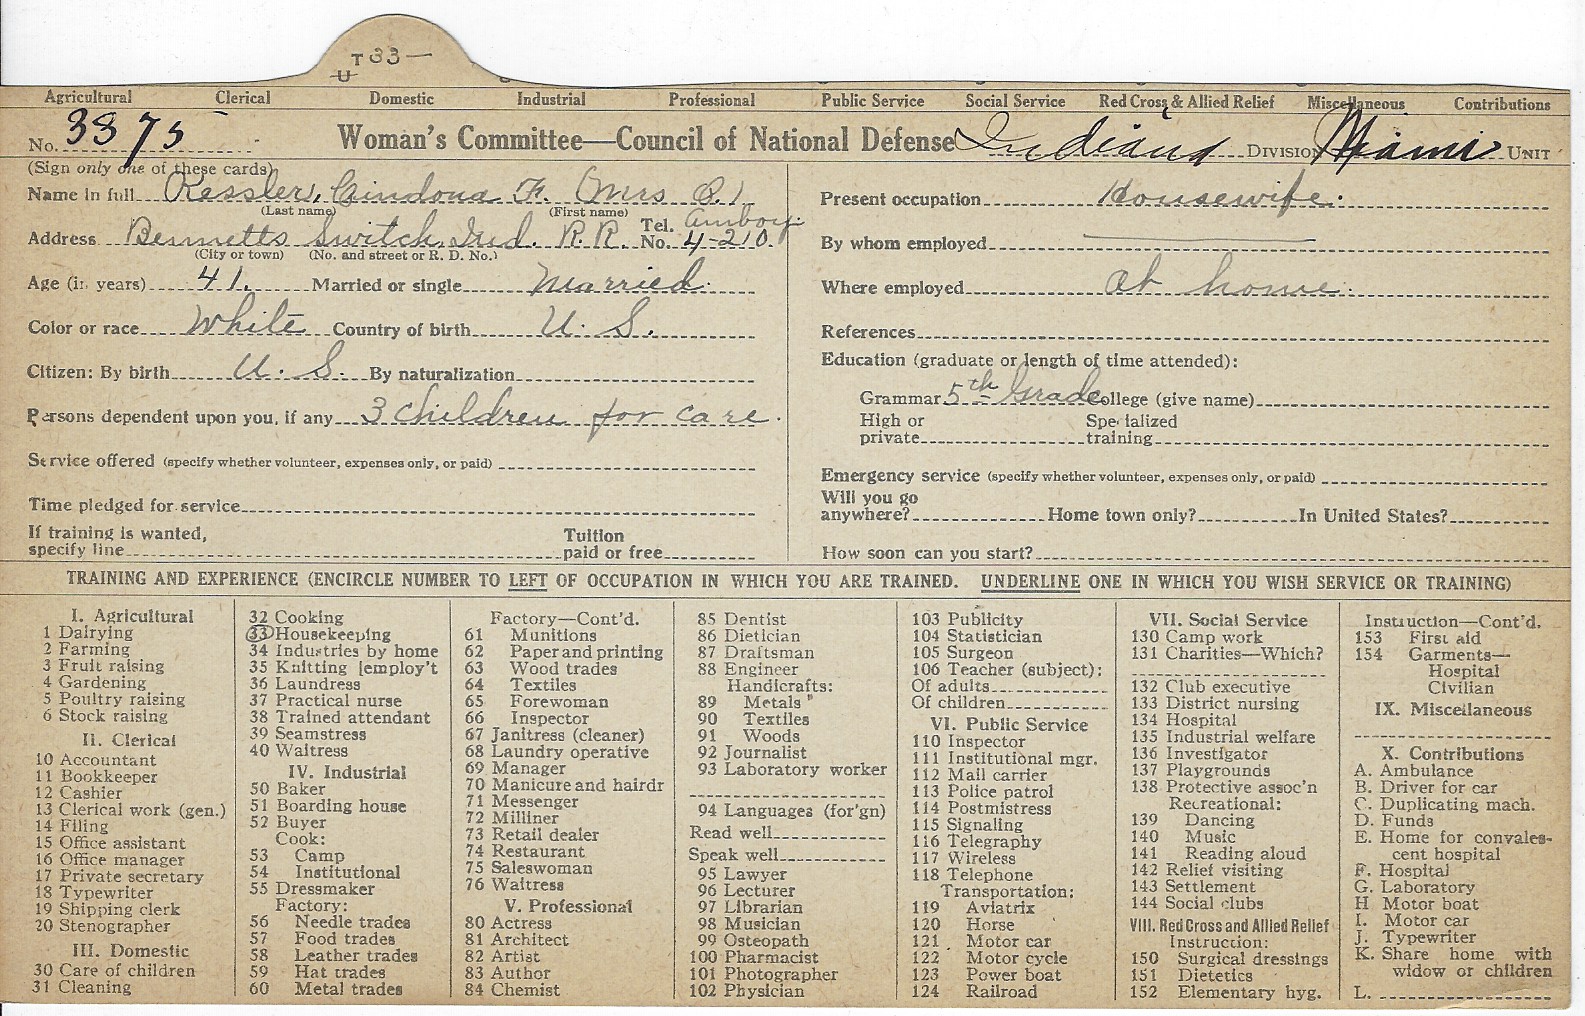 T 33—
U
Agricultural Clerical Domestic Industrial Professional Public Service Social Service Red Cross & Allied Relief Miscellaneous Contributions
No. 3375 Woman's Committee—Council of National Defense Indiana DIVISION Miami UNIT
(Sign only one of these cards)
Name in full Kessler, F. (Mrs O.)
(Last name) (First name)
Address Bennetts Switch, Ind. R. R. Tel. No. Amboy 4-210.
(City or town) (No. and street or R. D. No.)
Age (in years) 41. Married or single Married.
Color or race White Country of birth U. S.
Citizen: By birth U. S. By naturalization
Persons dependent upon you, if any 3 children for care.
Service offered (specify whether volunteer, expenses only, or paid)
Time pledged for service
If training is wanted,
specify line Tuition paid or free
Present occupation Housewife.
By whom employed ———
Where employed at home.
References
Education (graduate or length of time attended):
Grammar 5th Grade College (give name)
High or private Specialized training
Emergency service (specify whether volunteer, expenses only, or paid)
Will you go
anywhere? Home town only? In United States?
How soon can you start?
TRAINING AND EXPERIENCE (ENCIRCLE NUMBER TO LEFT OF OCCUPATION IN WHICH YOU ARE TRAINED. UNDERLINE ONE IN WHICH YOU WISH SERVICE OR TRAINING)
I. Agricultural
1 Dairying
2 Farming
3 Fruit raising
4 Gardening
5 Poultry raising
6 Stock raising
II. Clerical
10 Accountant
11 Bookkeeper
12 Cashier
13 Clerical work (gen.)
14 Filing
15 Office assistant
16 Office manager
17 Private secretary
18 Typewriter
19 Shipping clerk
20 Stenographer
III. Domestic
30 Care of children
31 Cleaning
32 Cooking
33 Housekeeping
34 Industries by home
35 Knitting [employ't
36 Laundress
37 Practical nurse
38 Trained attendant
39 Seamstress
40 Waitress
IV. Industrial
50 Baker
51 Boarding house
52 Buyer
Cook:
53 Camp
54 Institutional
55 Dressmaker
Factory:
56 Needle trades
57 Food trades
58 Leather trades
59 Hat trades
60 Metal trades
Factory—Cont'd.
61 Munitions
62 Paper and printing
63 Wood trades
64 Textiles
65 Forewoman
66 Inspector
67 Janitress (cleaner)
68 Laundry operative
69 Manager
70 Manicure and hairdr
71 Messenger
72 Milliner
73 Retail dealer
74 Restaurant
75 Saleswoman
76 Waitress
V. Professional
80 Actress
81 Architect
82 Artist
83 Author
84 Chemist
85 Dentist
86 Dietician
87 Draftsman
88 Engineer
Handicrafts:
89 Metals "
90 Textiles
91 Woods
92 Journalist
93 Laboratory worker
94 Languages (for'gn)
Read well
Speak well
95 Lawyer
96 Lecturer
97 Librarian
98 Musician
99 Osteopath
100 Pharmacist
101 Photographer
102 Physician
103 Publicity
104 Statistician
105 Surgeon
106 Teacher (subject):
Of adults
Of children
VI. Public Service
110 Inspector
111 Institutional mgr.
112 Mail carrier
113 Police patrol
114 Postmistress
115 Signaling
116 Telegraphy
117 Wireless
118 Telephone
Transportation:
119 Aviatrix
120 Horse
121 Motor car
122 Motor cycle
123 Power boat
124 Railroad
VII. Social Service
130 Camp work
131 Charities—Which?
132 Club executive
133 District nursing
134 Hospital
135 Industrial welfare
136 Investigator
137 Playgrounds
138 Protective assoc'n
Recreational:
139 Dancing
140 Music
141 Reading aloud
142 Relief visiting
143 Settlement
144 Social clubs
VIII. Red Cross and Allied Relief
Instruction:
150 Surgical dressings
151 Dietetics
152 Elementary hyg.
Instruction—Cont'd.
153 First aid
154 Garments—
Hospital
Civilian
IX. Miscellaneous
X. Contributions
A. Ambulance
B. Driver for car
C. Duplicating mach.
D. Funds
E. Home for convales-
cent hospital
F. Hospital
G. Laboratory
H Motor boat
I. Motor car
J. Typewriter
K. Share home with
widow or children
L.